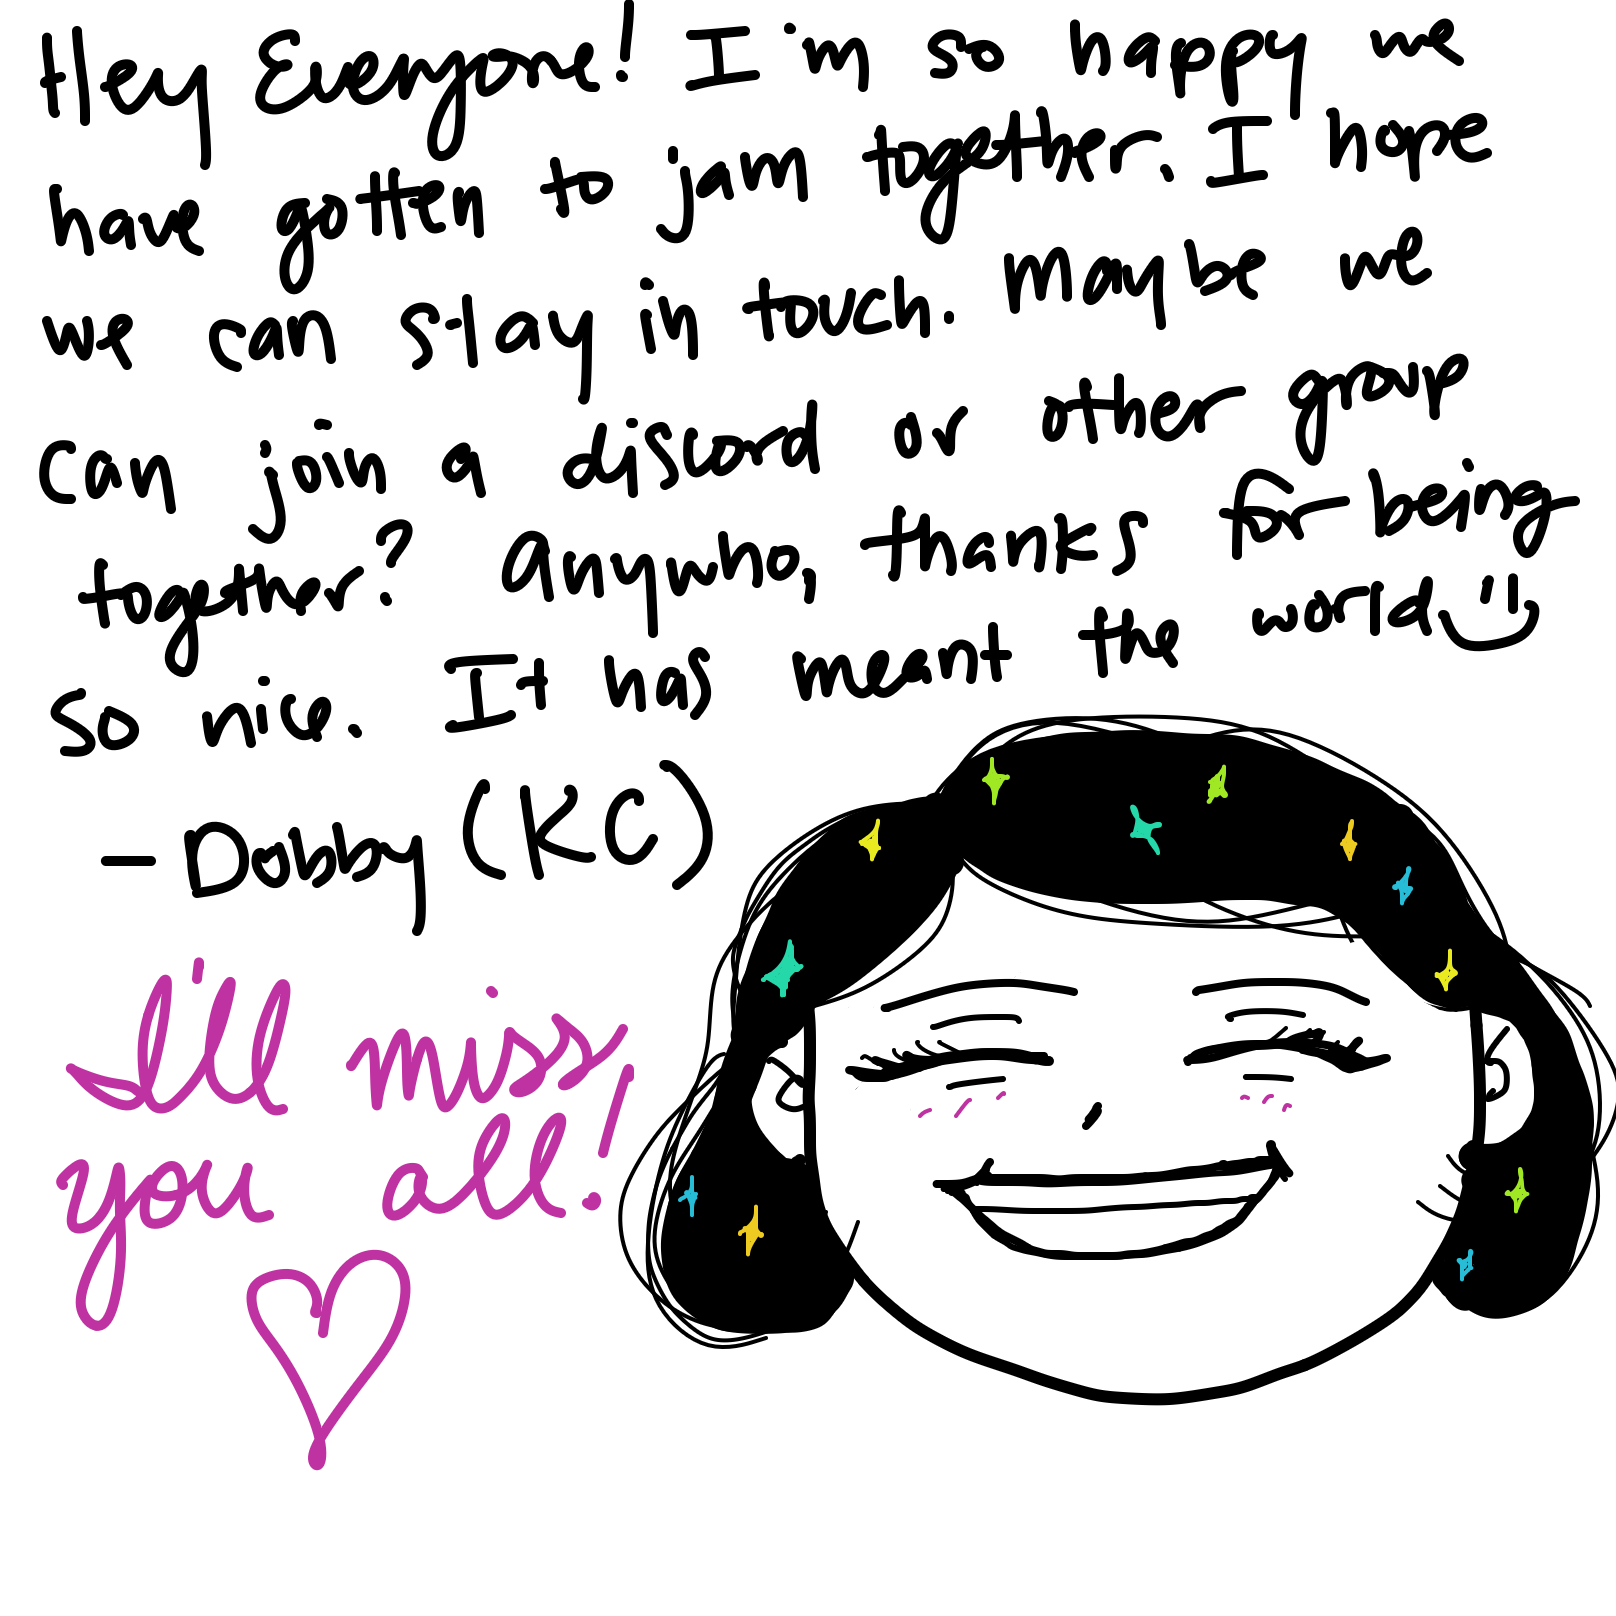 Hey Everyone! I'm so happy we
have gotten to jam together. I hope
we can stay in touch. Maybe we
can join a discord or other group
together? Anywho, thanks for being
so nice. It has meant the world
- Dobby (KC)
I'll miss
you all!